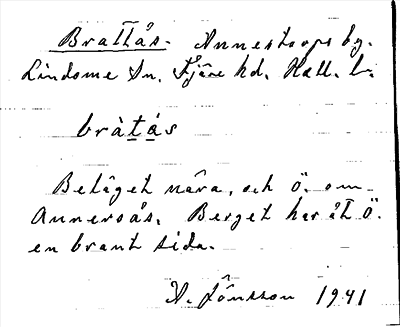 Brattås. Annestorps by.
Lindome Sn. Fjäre hd. Hall. l.
bràtás
Beläget nära, och ö. om
Annersås. Berget har åt Ö.
en brant sida.
A. Jönsson 1941